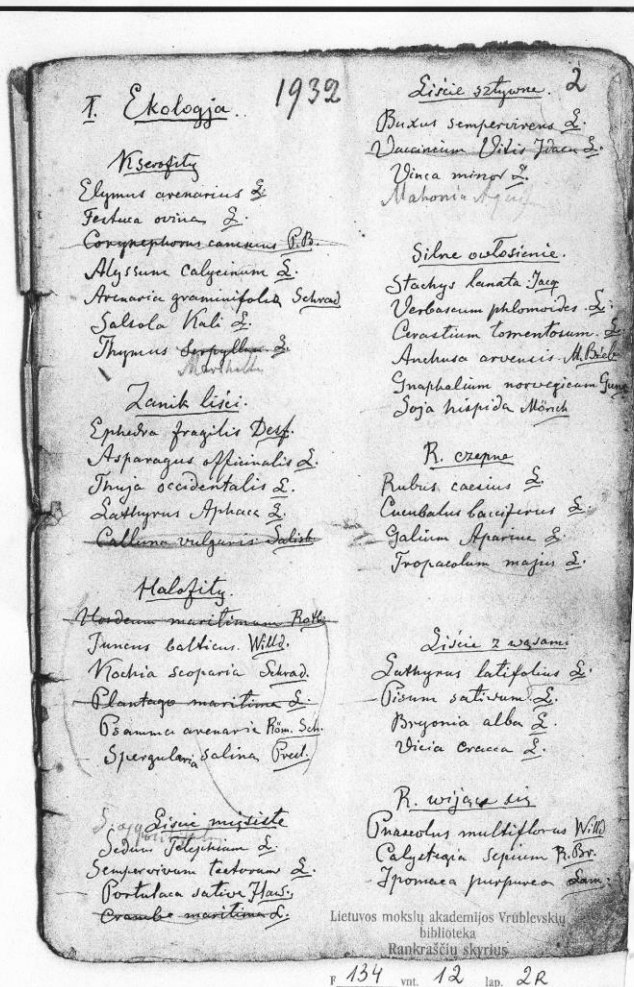 I. Ekologja. 1932
Kserofity
Elymus arenarius L.
Festuca ovina L.
Corynephorus canescens P.B.
Alyssum calycinum L.
Arenaria graminifolia Schrad
Salsola Kali L.
Thymus Serpyllum L.
Zanik liści.
Ephedra fragilis Desf.
Asparagus officinalis L.
Thuja occidentalis L.
Lathyrus Aphaca L.
Calluna vulgaris Salisb
Halofity.
Hordeum maritimum Roth
Juncus balticus Willd.
Kochia scoparia Schrad.
Plantago maritima L.
Psamma arenaria Röm. Sch.
Spergularia salina Presl.
Liście mięsiste
Sedum Telephium L.
Sempervivum tectorum L.
Portulaca sativa Haw.
Crambe maritima L.
Liście sztywne. 2
Buxus sempervirens L.
Vaccinium Vitis Idaea L.
Vinca minor L.
Mahonia
Silne owłosienie.
Stachys lanata Jacq
Verbascum phlomoides L.
Cerastium tomentosum L.
Anchusa arvensis M. Bieb
Gnaphalium norvegicum Gunn
Soja hispida Mönch
R. czepne
Rubus caesius L.
Cucubalus bacciferus L.
Galium Aparine L.
Tropaeolum majus L.
Liście z wąsami
Lathyrus latifolius L.
Pisum sativum L.
Bryonia alba L.
Vicia cracca L.
R. wijące się
Phaseolus multiflorus Willd
Calystegia sepium R. Br.
Ipomaea purpurea Lam.
Lietuvos mokslų akademijos Vrublevskių
biblioteka
Rankraščių skyrius
F 134 vnt. 12 lap. 2R